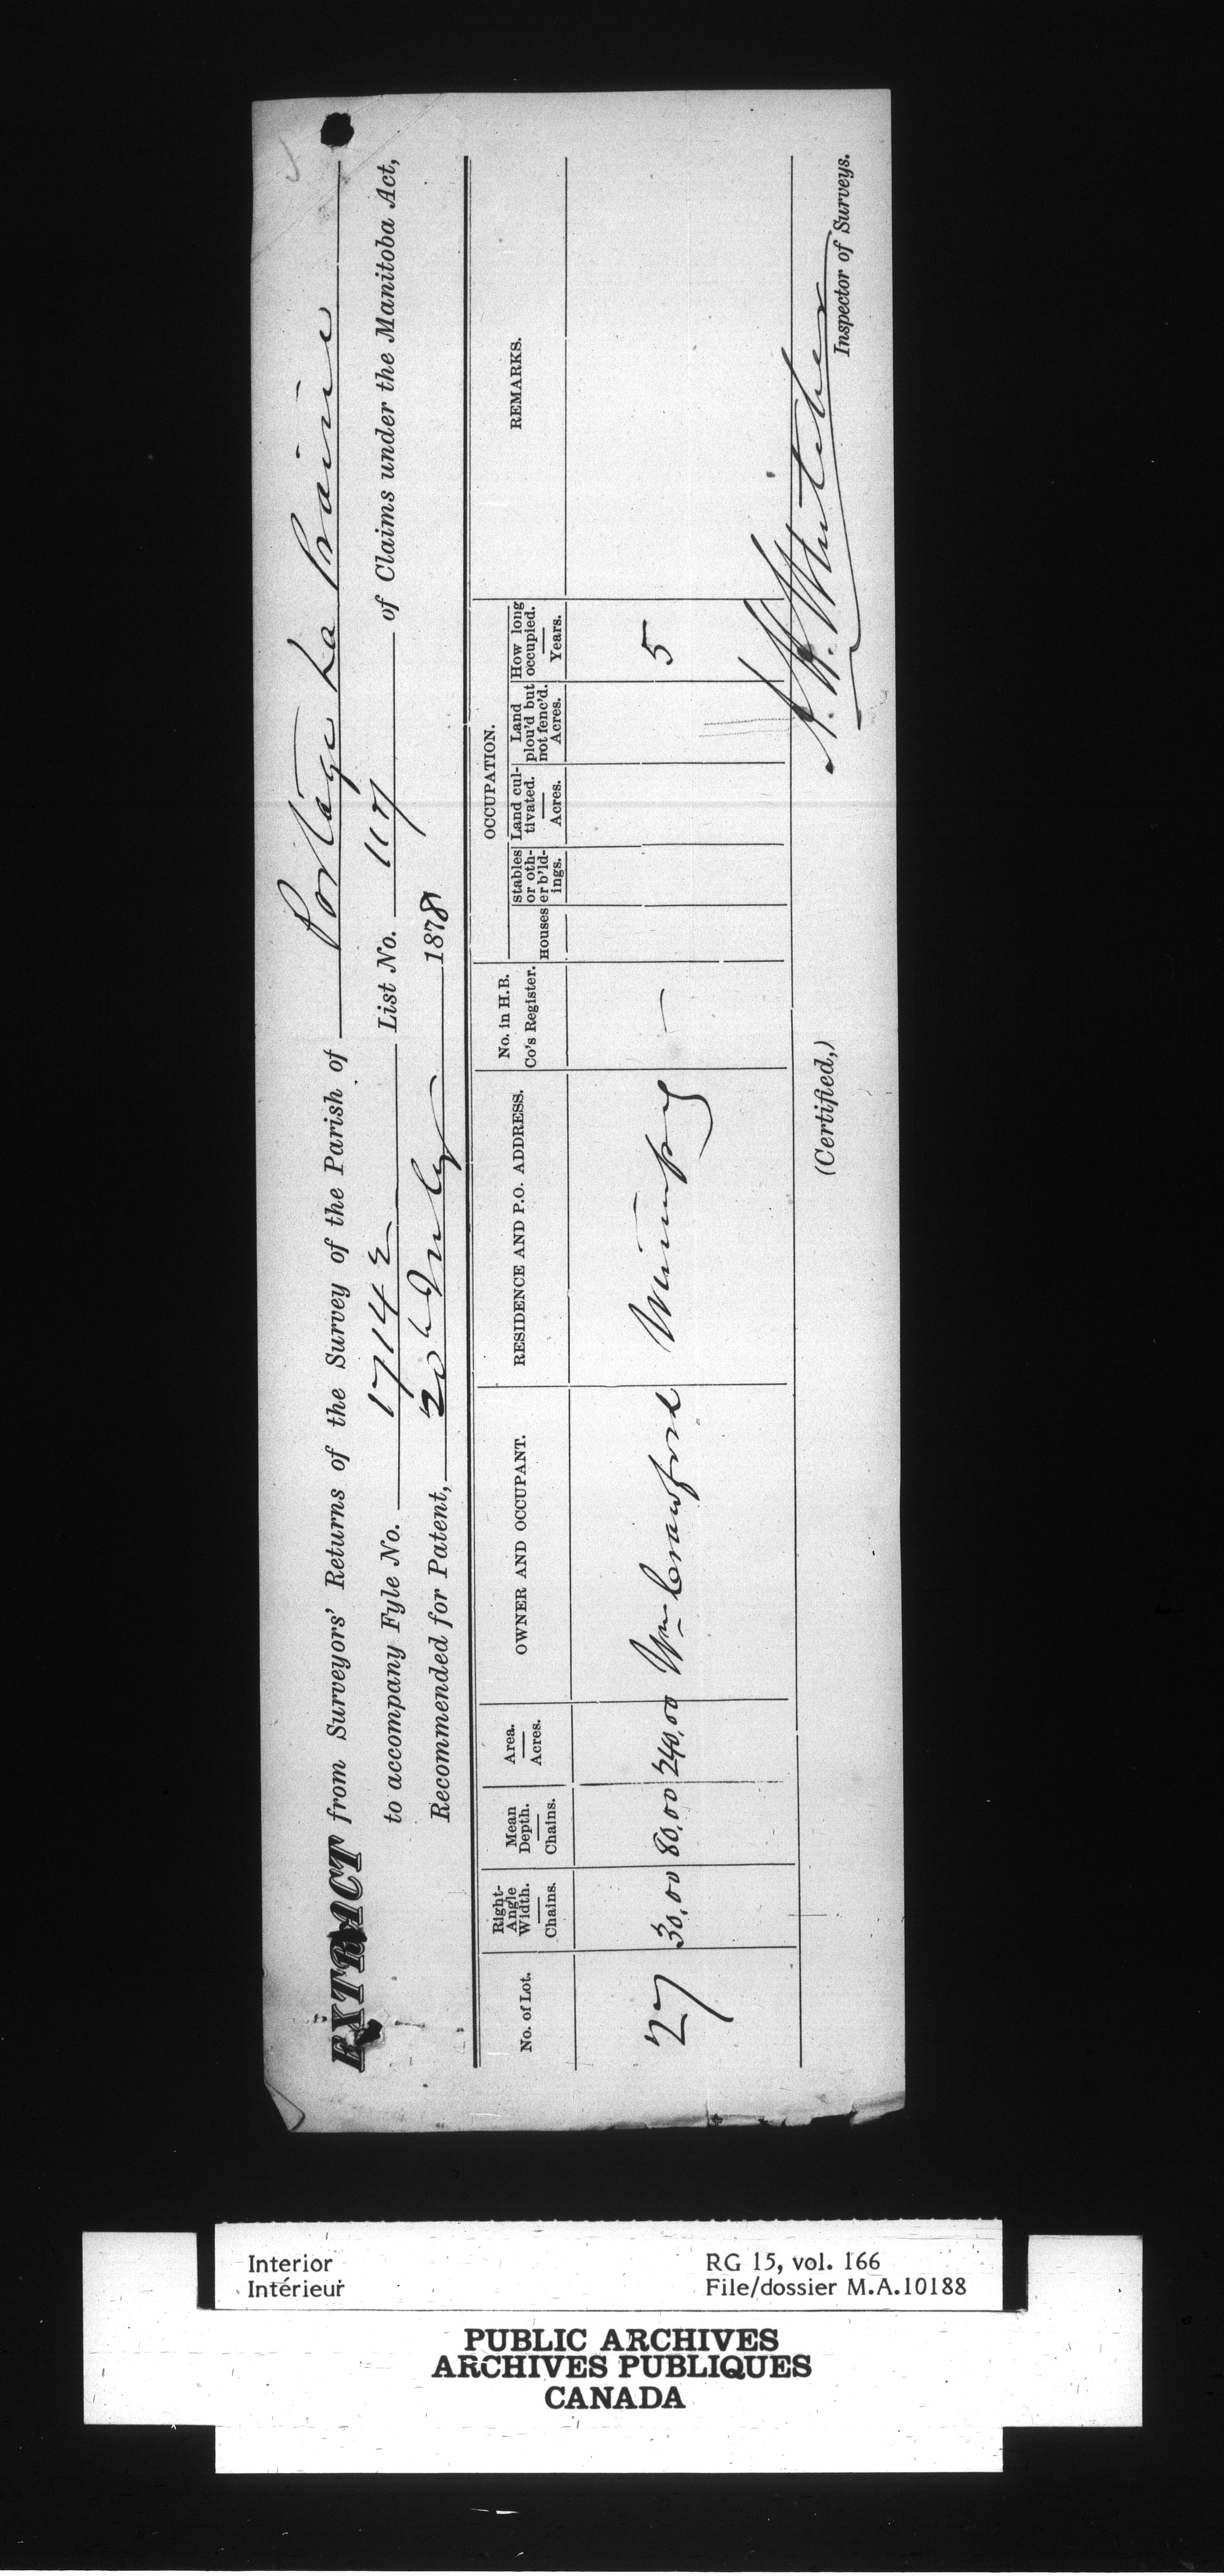 EXTRACT from Surveyors' Returns of the Survey of the Parish of Portage La Prairie
to accompany Fyle No. 17142 List No. 117 of Claims under the Manitoba Act,
Recommended for Patent, 20th July 1878
No. of Lot. Right-Angle Width. Chains. Mean Depth. Chains. Area. Acres. OWNER AND OCCUPANT. RESIDENCE AND P.O. ADDRESS. No. in H.B. Co's Register. OCCUPATION. Houses stables or other b'ldings. Land cultivated. Acres. Land plou'd but not fenc'd. Acres. How long occupied. Years. REMARKS.
27 30,00 80,00 240,00 Wm Crawford Winnipeg — 5
(Certified,)
Inspector of Surveys.
Interior
Intérieur
RG 15, vol. 166
File/dossier M.A.10188
PUBLIC ARCHIVES
ARCHIVES PUBLIQUES
CANADA